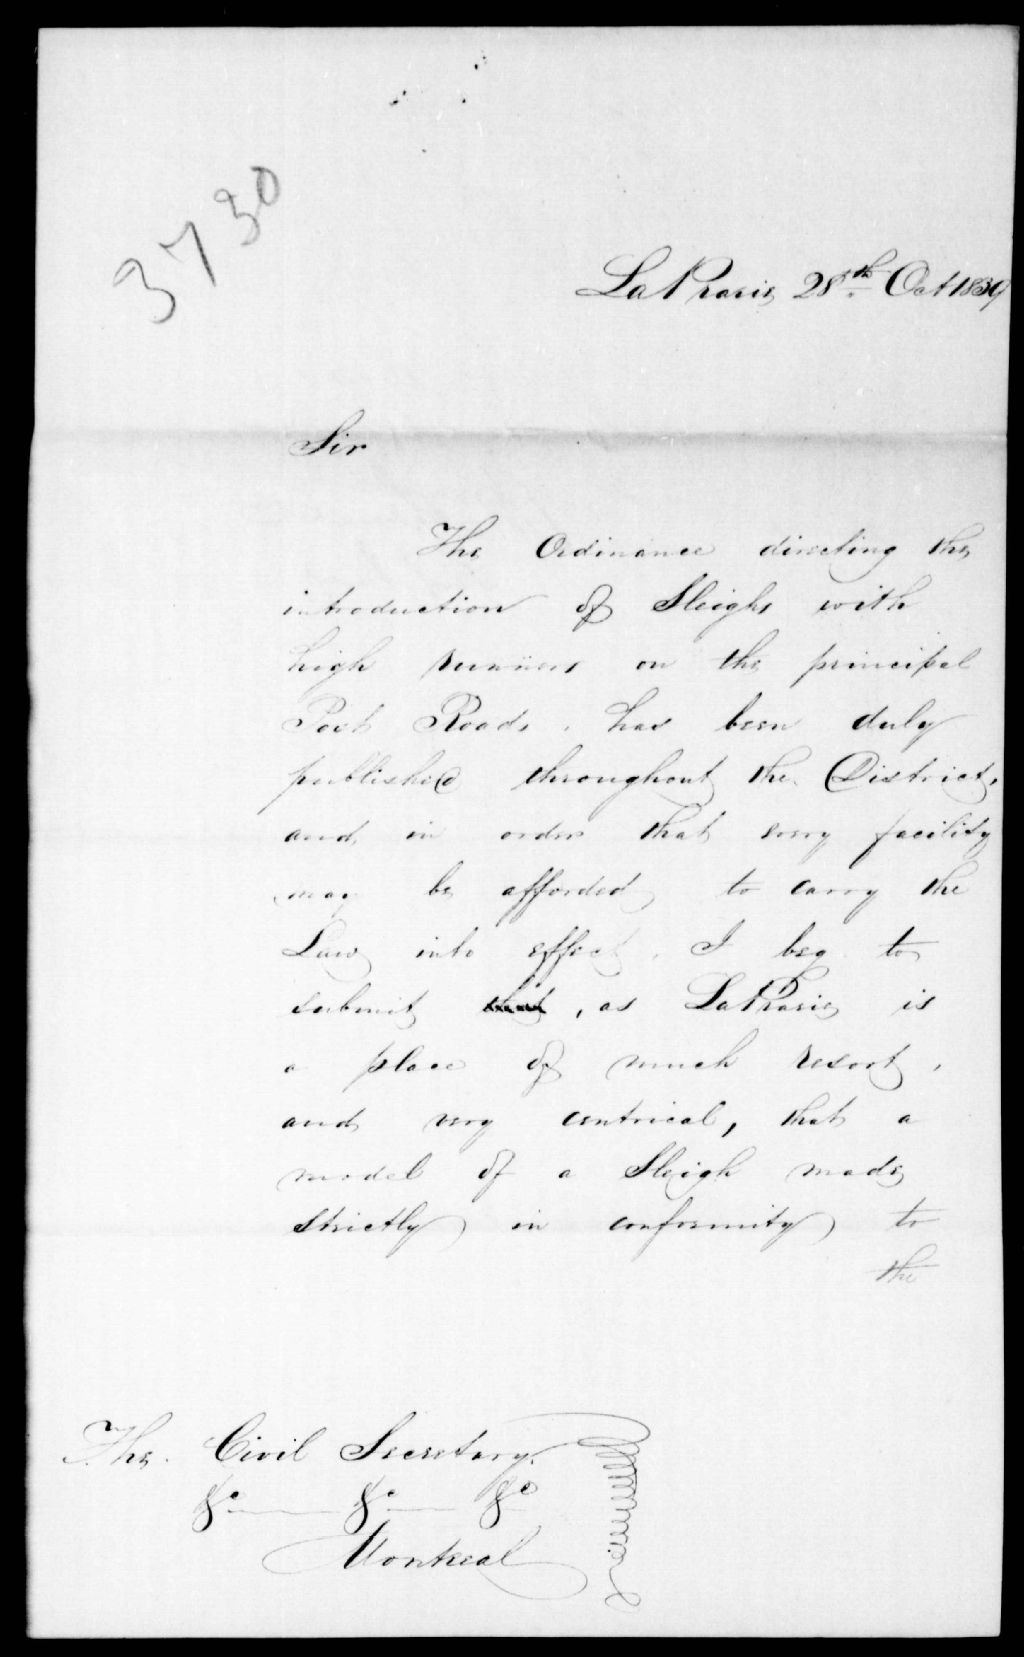 3730
LaPrarie 28th Oct 1839
Sir
The Ordinance directing the
introduction of Sleighs with
high runners on the principal
Post Roads, has been duly
published throughout the District,
and in order that every facility
may be afforded to carry the
Law into effect, I beg to
submit that, as LaPrarie is
a place of much resort,
and very centrical, that a
model of a Sleigh made
strictly in conformity to
the
The Civil Secretary
&c &c &c
Montreal